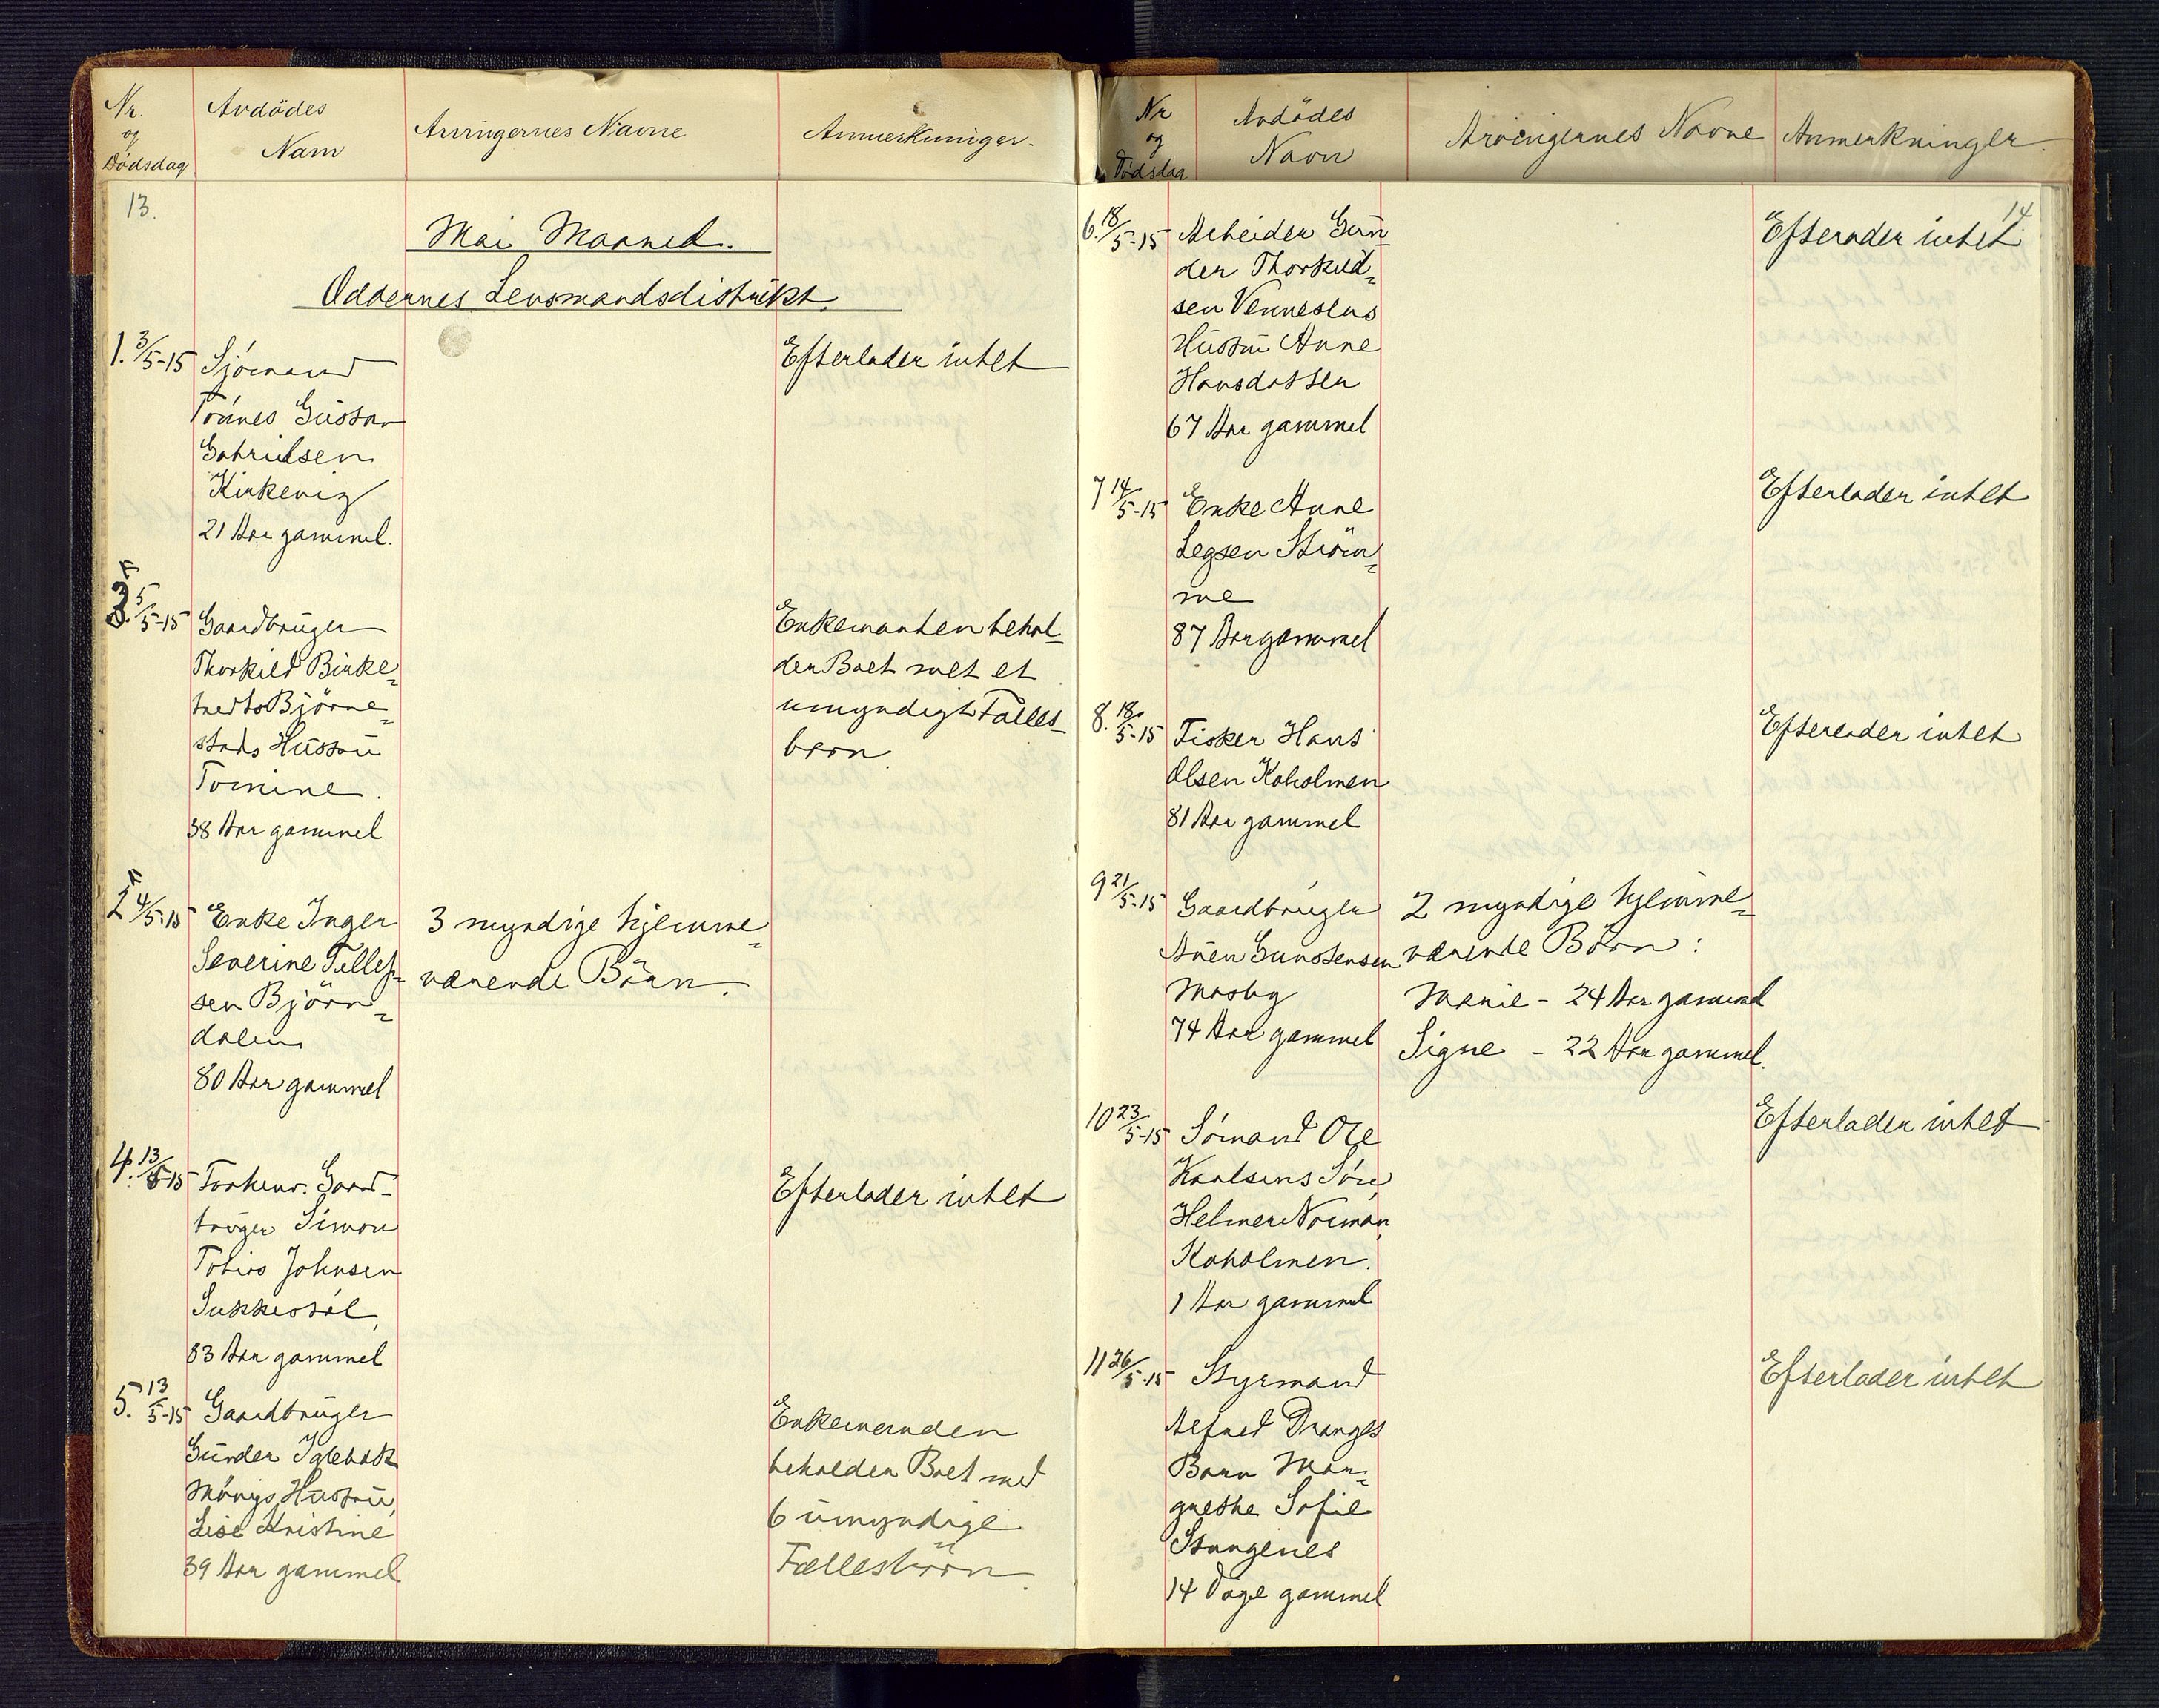 Nr.
og
Dødsdag
Avdødes
Navn
Arvingernes Navne
Anmerkninger.
13.
Mai Maaned.
Oddernes Lensmandsdistrikt.
1. 3/5-15 Sjømand
Tønnes Gustav
Gabrielsen
Kirkevig
21 Aar gammel.
Efterlader intet
3. 5/5-15 Gaardbruger
Thorkild Birke-
tvedts Bjørne-
stads Hustru
Tomine.
38 Aar gammel
Enkemanden behol-
der Boet med et
umyndigt Fælles-
barn.
2 4/5-15 Enke Inger
Severine Tellef-
sen Bjørn-
dalen
80 Aar gammel
3 myndige hjemme-
værende Børn.
4. 13/5-15 Forhenv. Gaard-
bruger Simon
Tobias Johnsen
Sukkestøl,
83 Aar gammel
Efterlader intet
5. 13/5-15 Gaardbruger
Gunder
Hustru,
Lise Kristine
39 Aar gammel
Enkemanden
beholder Boet med
6 umyndige
Fællesbørn.
Nr
og
Dødsdag
Avdødes
Navn
Arvingernes Navne
Anmerkninger.
14
6. 18/5-15 Arbeider Gun
der Thorkild-
sen Venneslas
Hustru Anne
Hansdatter
67 Aar gammel
Efterlader intet
7 14/5-15 Enke Anne
Legsen Strøm-
me
87 Aar gammel
Efterlader intet
8. 18/5-15 Fisker Hans
Olsen Koholmen
81 Aar gammel
Efterlader intet
9 21/5-15 Gaardbruger
Aven Gunstensen
Mosby
74 Aar gammel
2 myndige hjemme-
værende Børn:
Marie - 24 Aar gammel
Signe - 22 Aar gammel.
10 23/5-15 Sømand Ole
Karlsens Søn,
Helmer Norman,
Koholmen.
1 Aar gammel
Efterlader intet
11 26/5-15 Styrmand
Alfred Dranges
Barn Mar-
grethe Sofie
Stangenes
14 Dage gammel
Efterlader intet